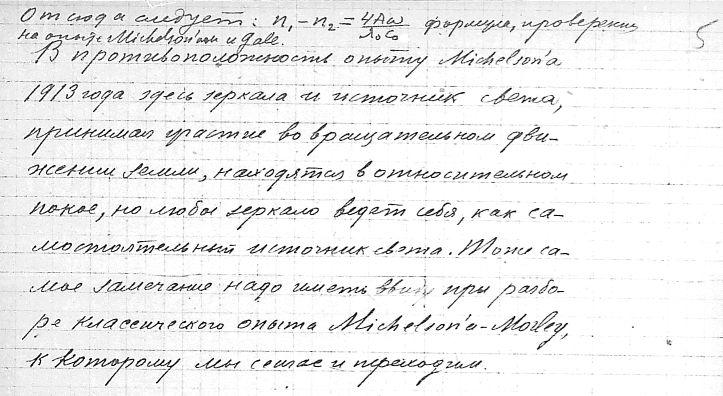 Отсюда следует: n₁ - n₂ = 4Aω/λ₀c₀ формула, проверенн 5
на опыте Michelson'ом и Gale.
В противоположность опыту Michelson'а
1913 года здесь зеркала и источник света,
принимая участие во вращательном дви-
жении земли, находятся в относительном
покое, но любое зеркало ведет себя, как са-
мостоятельный источник света. Тоже са-
мое замечание надо иметь ввиду при разбо-
ре классического опыта Michelson'а-Morley,
к которому мы сейчас и переходим.